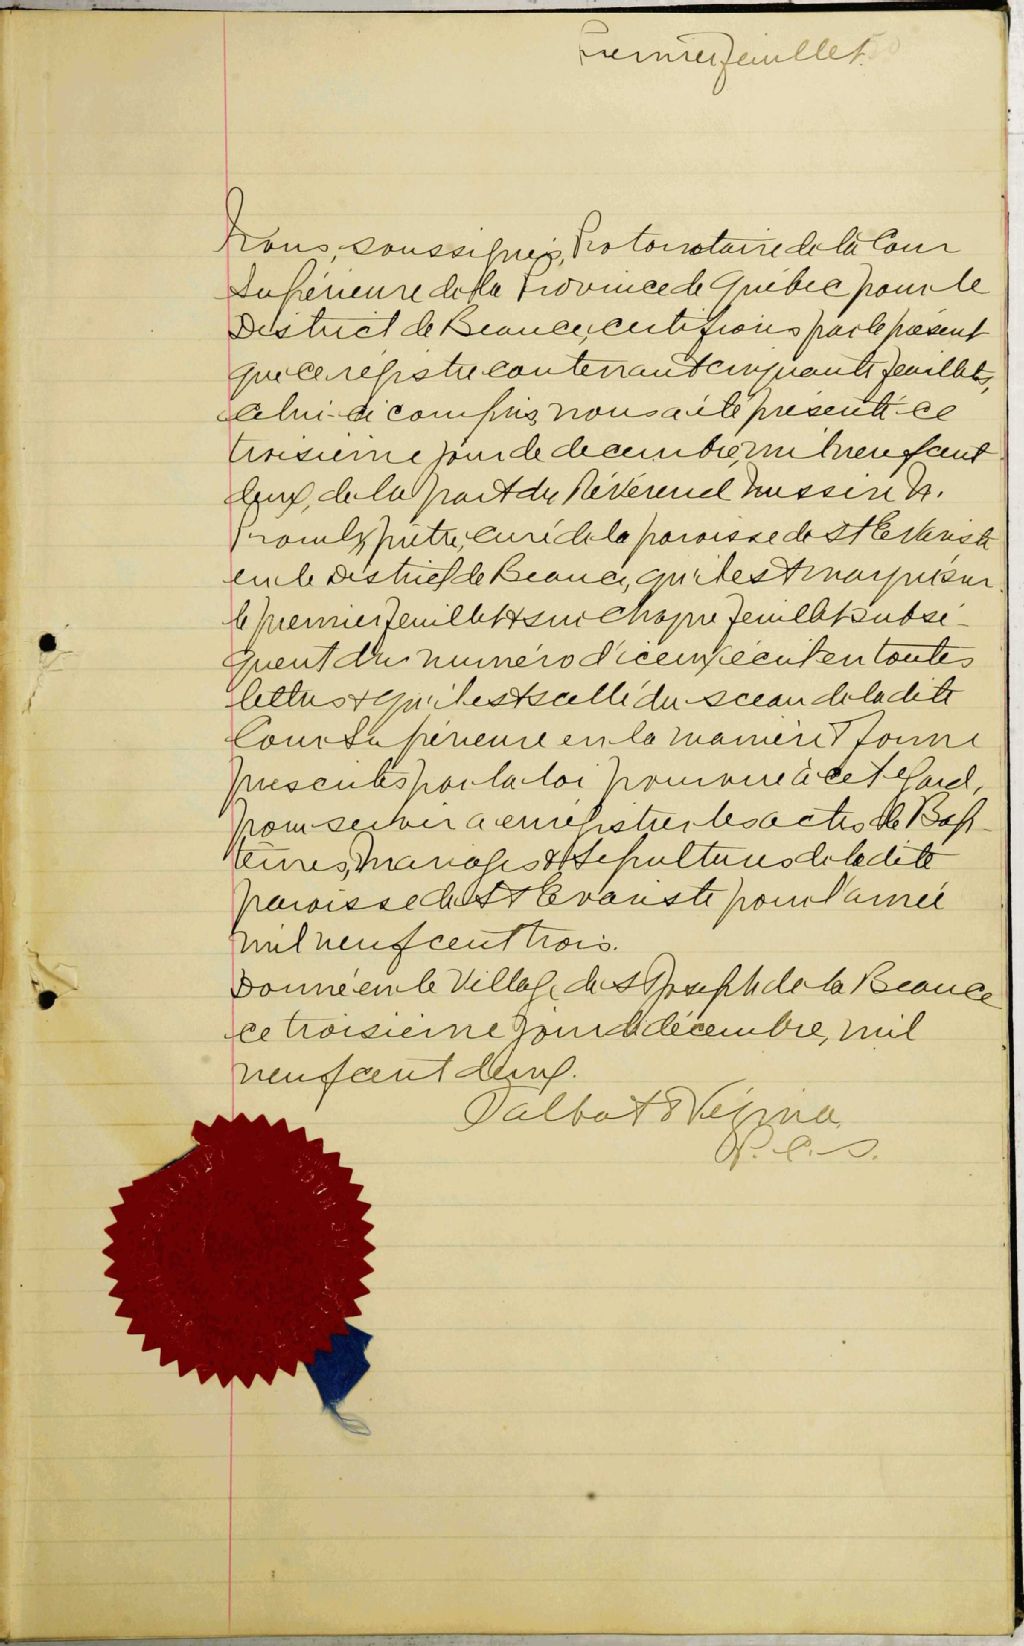 Premier feuillet.
Nous, soussignés, Protonotaire de la Cour
Supérieure de la Province de Québec pour le
District de Beauce, certifions par le présent
que ce régistre contenant cinquante feuillets,
celui-ci compris, nous a été présenté ce
troisième jour de decembre, mil neuf cent
deux, de la part du Révérend Messire
Proulx, prêtre, curé de la paroisse de St Evariste
en le District de Beauce, qu'il est marqué sur
le premier feuillet & sur chaque feuillet subsé-
quent du numéro d'iceux, écrit en toutes
lettres & qu'il est scellé du sceau de la dite
Cour Supérieure en la manière & forme
prescrites par la loi pourvue à cet égard,
pour servir a enrégistrer les actes de Bap-
têmes, Mariages & Sepultures de la dite
paroisse de St Evariste pour l'année
mil neuf cent trois.
Donné en le Village de St Joseph de la Beauce
ce troisième jour de décembre, mil
neuf cent deux.
Talbot & Vézina
P. C. S.